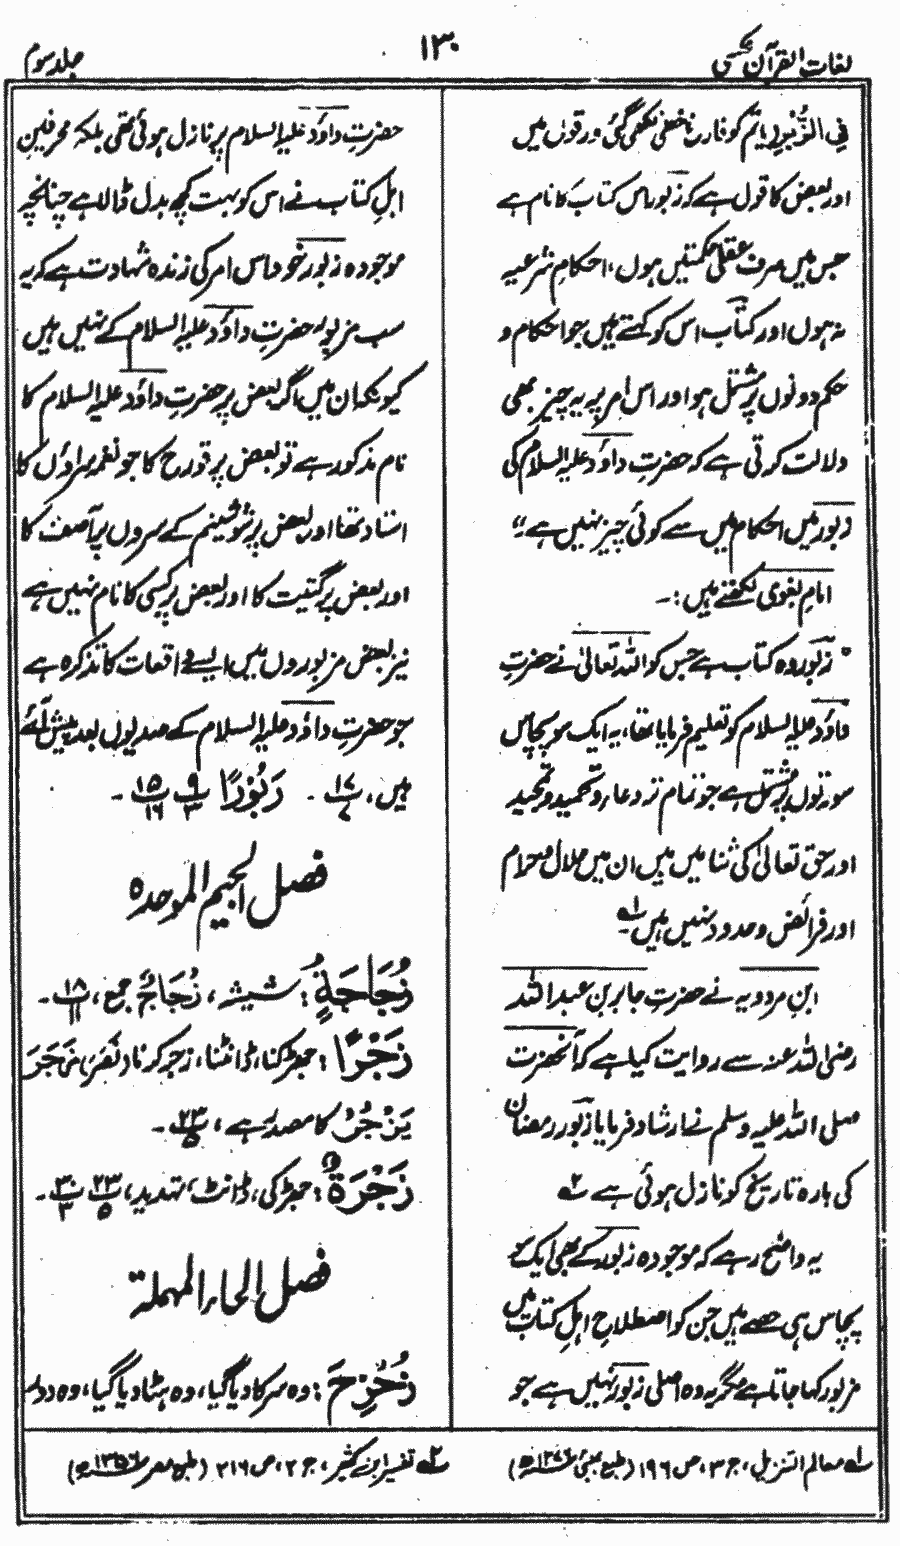 لغات القرآن عکسی
۱۳۰
جلد سوم
فِی الزُّبُرِ یا تم کو فارغ خطی لکھی گئی ورقوں میں
اور بعض کا قول ہے کہ زبور اس کتاب کا نام ہے
جس میں صرف عقلی حکمتیں ہوں، احکامِ شرعیہ
نہ ہوں اور کتاب اس کو کہتے ہیں جو احکام و
حکم دونوں پر مشتمل ہو اور اس امر پر یہ چیز بھی
دلالت کرتی ہے کہ حضرت داؤد علیہ السلام کی
زبور میں احکام میں سے کوئی چیز نہیں ہے"
امام بغوی لکھتے ہیں :-
" زبور وہ کتاب ہے جس کو اللہ تعالیٰ نے حضرت
داؤد علیہ السلام کو تعلیم فرمایا تھا، یہ ایک سو پچاس
سورتوں پر مشتمل ہے جو تمام تر دعا، و تحمید و تمجید
اور حق تعالیٰ کی ثنا میں ہیں ان میں حلال و حرام
اور فرائض و حدود نہیں ہیں لہ۔
ابن مردویہ نے حضرت جابر بن عبداللہ
رضی اللہ عنہ سے روایت کیا ہے کہ آنحضرت
صلی اللہ علیہ وسلم نے ارشاد فرمایا زبور رمضان
کی بارہ تاریخ کو نازل ہوئی ہے ۲ہ
یہ واضح رہے کہ موجودہ زبور کے بھی ایک سو
پچاس ہی حصے ہیں جن کو اصطلاحِ اہلِ کتاب میں
مزبور کہا جاتا ہے مگر یہ وہ اصلی زبور نہیں ہے جو
لہ معالم التنزیل، ج ۳، ص ۱۹۶ (طبع بمبئی
حضرت داؤد علیہ السلام پر نازل ہوئی تھی بلکہ محرفین
اہلِ کتاب نے اس کو بہت کچھ بدل ڈالا ہے چنانچہ
موجودہ زبور خود اس امر کی زندہ شہادت ہے کہ یہ
سب مزبور حضرت داؤد علیہ السلام کے نہیں ہیں
کیونکہ ان میں اگر بعض پر حضرت داؤد علیہ السلام کا
نام مذکور ہے تو بعض پر قورح کا جو نغمہ سراؤں کا
استاد تھا اور بعض پر شوشنیم کے سروں پر آصف کا
اور بعض پر گتیت کا اور بعض پر کسی کا نام نہیں ہے
نیز بعض مزبوروں میں ایسے واقعات کا تذکرہ ہے
جو حضرت داؤد علیہ السلام کے صدیوں بعد پیش آئے
ہیں، ۱۷ ۔ زَبُوْرًا ۹ ۳ ۱۵ ۱۶ ۔
فصل الجیم الموحدہ
زُجَاجَةٌ : شیشہ، زُجَاجٌ جمع، ۱۸ ۱۱ ۔
زَجْرًا : جھڑکنا، ڈانٹنا، زجر کرنا (نَصَرَ) زَجَرَ
یَزْجُرُ کا مصدر ہے، ۲۳ ۵ ۔
زَجْرَةٌ : جھڑکی، ڈانٹ، تہدید، ۲۳ ۵ ۳۰ ۳ ۔
فصل الحاء المهملة
زُحْزِحَ : وہ سرکا دیا گیا، وہ ہٹا دیا گیا، وہ دور
۲ہ تفسیر ابن کثیر، ج ۲، ص ۲۱۶ (طبع مصر ۱۳۵۶ھ)